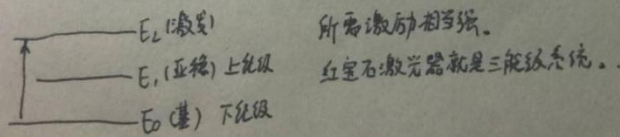 E₂(激发) 所需激励相当强。
E₁(亚稳) 上能级 红宝石激光器就是三能级系统。
E₀(基) 下能级